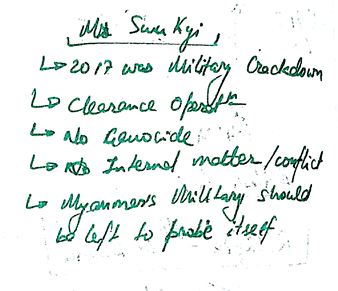 Ms Suu Kyi,
↳ 2017 was Military Crackdown
↳ Clearance operatn
↳ No Genocide
↳ Internal matter/conflict
↳ Myanmers Military should
be left to probe itself